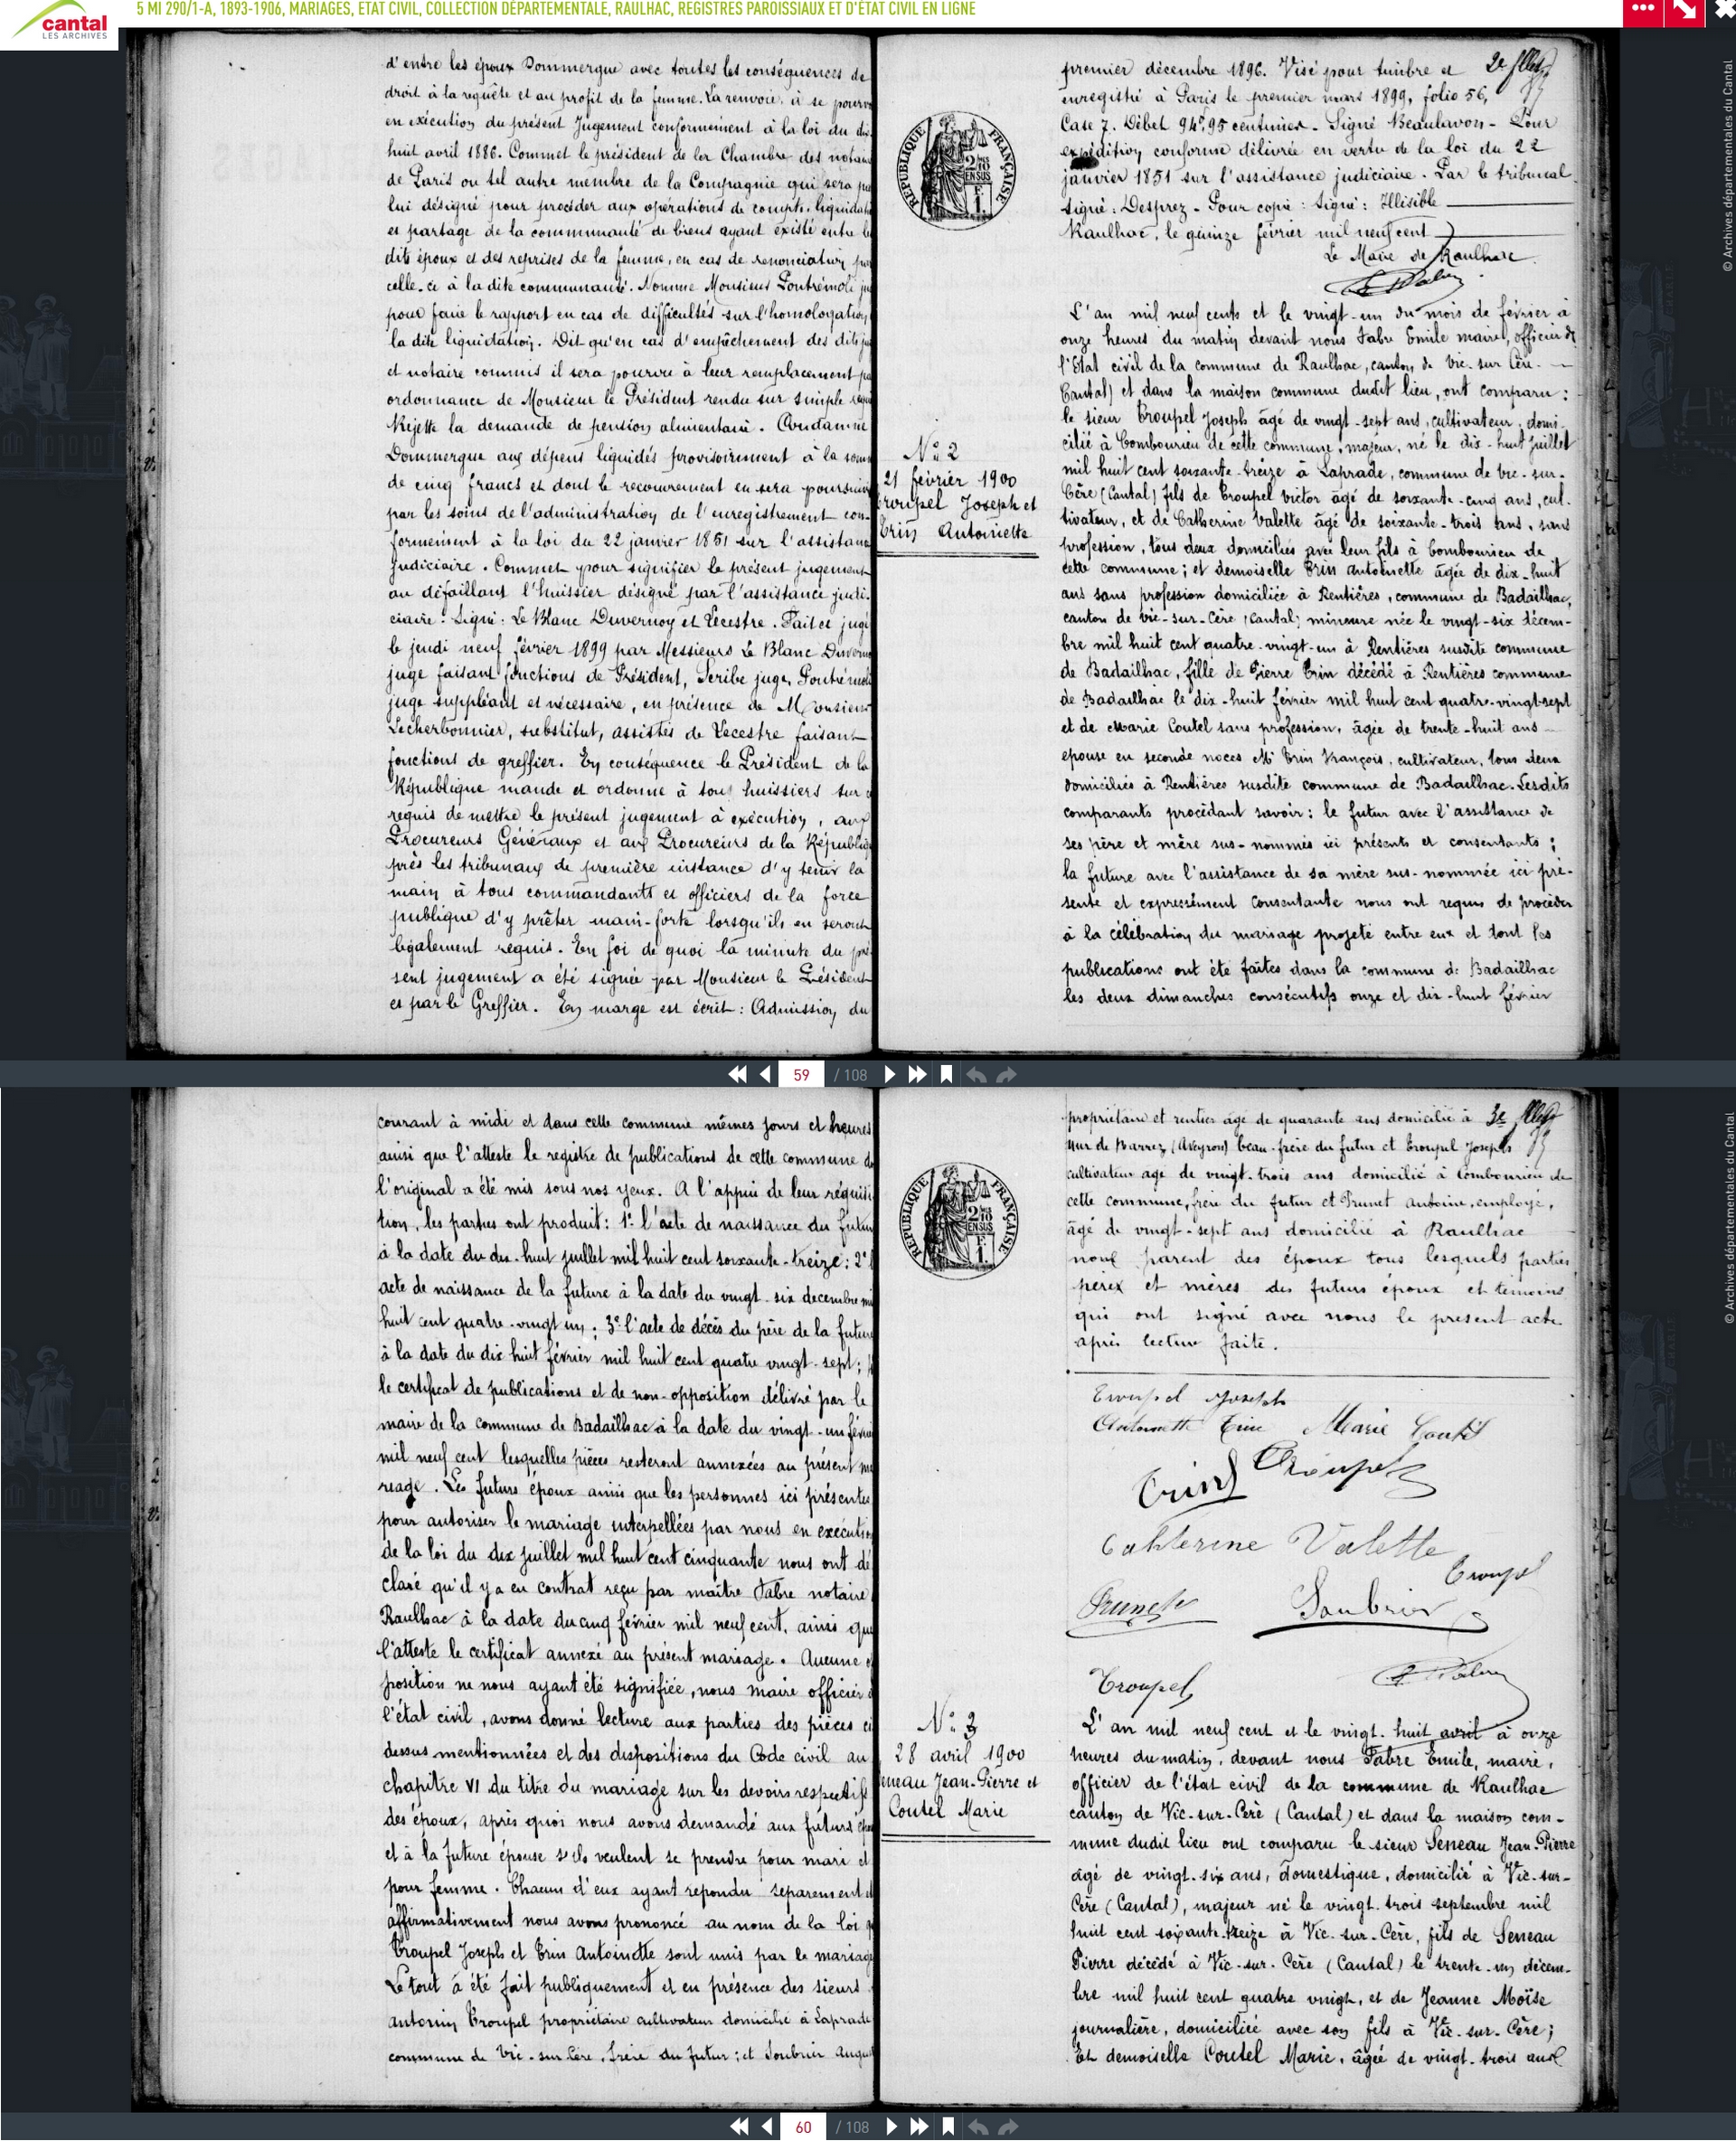 5 MI 290/1-A, 1893-1906, MARIAGES, ETAT CIVIL, COLLECTION DÉPARTEMENTALE, RAULHAC, REGISTRES PAROISSIAUX ET D'ÉTAT CIVIL EN LIGNE
cantal
LES ARCHIVES
d'entre les époux Dommergue avec toutes les conséquences de
droit à la requête et au profit de la femme. La renvoie, à se
en exécution du présent Jugement conformément à la loi du
huit avril 1886. Commet le président de la Chambre des
de Paris ou tel autre membre de la Compagnie qui sera
lui désigné pour procéder aux opérations de compte,
et partage de la communauté de biens ayant existé entre
dits époux et des reprises de la femme, en cas de renonciation
celle-ci à la dite communauté. Nomme Monsieur Pontrémoli
pour faire le rapport en cas de difficultés sur l'homologation
la dite liquidation. Dit qu'en cas d'empêchement des dits
et notaire commis il sera pourvu à leur remplacement
ordonnance de Monsieur le Président rendu sur simple
Rejette la demande de pension alimentaire. Condamne
Dommergue aux dépens liquidés provisoirement à la
de cinq francs et dont le recouvrement en sera
par les soins de l'administration de l'enregistrement con-
formément à la loi du 22 janvier 1851 sur l'assistance
Judiciaire. Commet pour signifier le présent jugement
au défaillant l'huissier désigné par l'assistance judi-
ciaire. Signé: Le Blanc Duvernoy et Lecestre. Fait et jugé
le jeudi neuf février 1899 par Messieurs Le Blanc
juge faisant fonctions de Président, Scribe juge, Pontrémoli
juge suppléant et nécessaire, en présence de Monsieur
Lecherbonnier, substitut, assistés de Lecestre faisant
fonctions de greffier. En conséquence le Président de la
République mande et ordonne à tous huissiers sur
requis de mettre le présent jugement à exécution, aux
Procureurs Généraux et aux Procureurs de la République
près les tribunaux de première instance d'y tenir la
main, à tous commandants et officiers de la force
publique d'y prêter main-forte lorsqu'ils en seront
légalement requis. En foi de quoi la minute du pré
sent jugement a été signée par Monsieur le Président
et par le Greffier. En marge est écrit: Admission du
2e
premier décembre 1896. Visé pour timbre et
enregistré à Paris le premier mars 1899, folio 56,
Case 7. Débet 94f,95 centimes. Signé Beaulavon. Pour
expédition conforme délivrée en vertu de la loi du 22
janvier 1851 sur l'assistance judiciaire. Par le tribunal
signé: Desprez. Pour copie: Signé: Illisible
Raulhac, le quinze février mil neuf cent
Le Maire de Raulhac
RÉPUBLIQUE FRANÇAISE
N° 2
21 février 1900
Troupel Joseph et
Trin Antoinette
L'an mil neuf cents et le vingt-un du mois de février à
onze heures du matin devant nous Fabre Emile maire, officier de
l'Etat civil de la commune de Raulhac, canton de Vic-sur-Cère
(Cantal) et dans la maison commune dudit lieu, ont comparu:
le sieur Troupel Joseph âgé de vingt-sept ans, cultivateur, domi-
cilié à Combourieu de cette commune, majeur, né le dix-huit juillet
mil huit cent soixante-treize à Laprade, commune de Vic-sur-
Cère (Cantal) fils de Troupel Victor âgé de soixante-cinq ans, cul-
tivateur, et de Catherine Valette âgé de soixante-trois ans, sans
profession, tous deux domiciliés avec leur fils à Combourieu de
cette commune; et demoiselle Trin Antoinette âgée de dix-huit
ans sans profession domiciliée à Rentières, commune de Badailhac,
canton de Vic-sur-Cère (Cantal) mineure née le vingt-six décem-
bre mil huit cent quatre-vingt-un à Rentières susdite commune
de Badailhac, fille de Pierre Trin décédé à Rentières commune
de Badailhac le dix-huit février mil huit cent quatre-vingt-sept
et de Marie Coutel sans profession, âgée de trente-huit ans
epouse en seconde noces Mr Trin François, cultivateur, tous deux
domiciliés à Rentières susdite commune de Badailhac. Lesdits
comparants procédant savoir: le futur avec l'assistance de
ses père et mère sus-nommés ici présents et consentants;
la future avec l'assistance de sa mère sus-nommée ici pré-
sente et expressément consentante nous ont requis de procéder
à la célébration du mariage projeté entre eux et dont les
publications ont été faites dans la commune de Badailhac
les deux dimanches consécutifs onze et dix-huit février
59 / 108
© Archives départementales du Cantal
courant à midi et dans cette commune mêmes jours et heures
ainsi que l'atteste le registre de publications de cette commune
l'original a été mis sous nos yeux. A l'appui de leur réquisi
tion, les parties ont produit: 1° l'acte de naissance du futur
à la date du dix-huit juillet mil huit cent soixante-treize: 2°
acte de naissance de la future à la date du vingt-six decembre
huit cent quatre-vingt un; 3° l'acte de décès du père de la future
à la date du dix huit février mil huit cent quatre vingt-sept;
le certificat de publications et de non-opposition délivré par le
maire de la commune de Badailhac à la date du vingt-un février
mil neuf cent lesquelles pièces resteront annexées au présent ma
riage. Les futurs époux ainsi que les personnes ici présentes
pour autoriser le mariage interpellées par nous en exécution
de la loi du dix juillet mil huit cent cinquante nous ont dé
claré qu'il y a eu contrat reçu par maître Fabre notaire
Raulhac à la date du cinq février mil neuf cent, ainsi que
l'atteste le certificat annexé au présent mariage. Aucune
position ne nous ayant été signifiée, nous maire officier
l'état civil, avons donné lecture aux parties des pièces ci
dessus mentionnées et des dispositions du Code civil au
chapitre VI du titre du mariage sur les devoirs respectifs
des époux, après quoi nous avons demandé aux futurs
et à la future épouse s'ils veulent se prendre pour mari et
pour femme. Chacun d'eux ayant repondu separement et
affirmativement nous avons prononcé au nom de la loi
Troupel Joseph et Trin Antoinette sont unis par le mariage
Le tout a été fait publiquement et en présence des sieurs
Antonin Troupel propriétaire cultivateur domicilié à Laprade
commune de Vic-sur-Cère, frère du futur; et Soubrier
3e
propriétaire et rentier âgé de quarante ans domicilié à
Mur de Barrez (Aveyron) beau-frère du futur et Troupel Joseph
cultivateur age de vingt-trois ans domicilié à Combourieu de
cette commune, frère du futur et Prunet Antoine, employé,
âgé de vingt-sept ans domicilié à Raulhac
non parent des époux tous lesquels parties
pères et mères des futurs époux et témoins
qui ont signé avec nous le present acte
après lecture faite.
RÉPUBLIQUE FRANÇAISE
Troupel Joseph
Antoinette Trin Marie Coutel
Trin Troupel
Cahterine Valette
Troupel
Prunet Soubrier
Troupel
N° 3
28 avril 1900
Seneau Jean-Pierre et
Coutel Marie
L'an mil neuf cent et le vingt-huit avril à onze
heures du matin, devant nous Fabre Emile, maire,
officier de l'état civil de la commune de Raulhac
canton de Vic-sur-Cère (Cantal) et dans la maison com-
mune dudit lieu ont comparu le sieur Seneau Jean-Pierre
âgé de vingt-six ans, domestique, domicilié à Vic-sur-
Cère (Cantal), majeur né le vingt-trois septembre mil
huit cent soixante-treize à Vic-sur-Cère, fils de Seneau
Pierre décédé à Vic-sur-Cère (Cantal) le trente-un décem-
bre mil huit cent quatre vingt, et de Jeanne Moïse
journalière, domiciliée avec son fils à Vic-sur-Cère;
Et demoiselle Coutel Marie, âgée de vingt-trois ans
60 / 108
© Archives départementales du Cantal